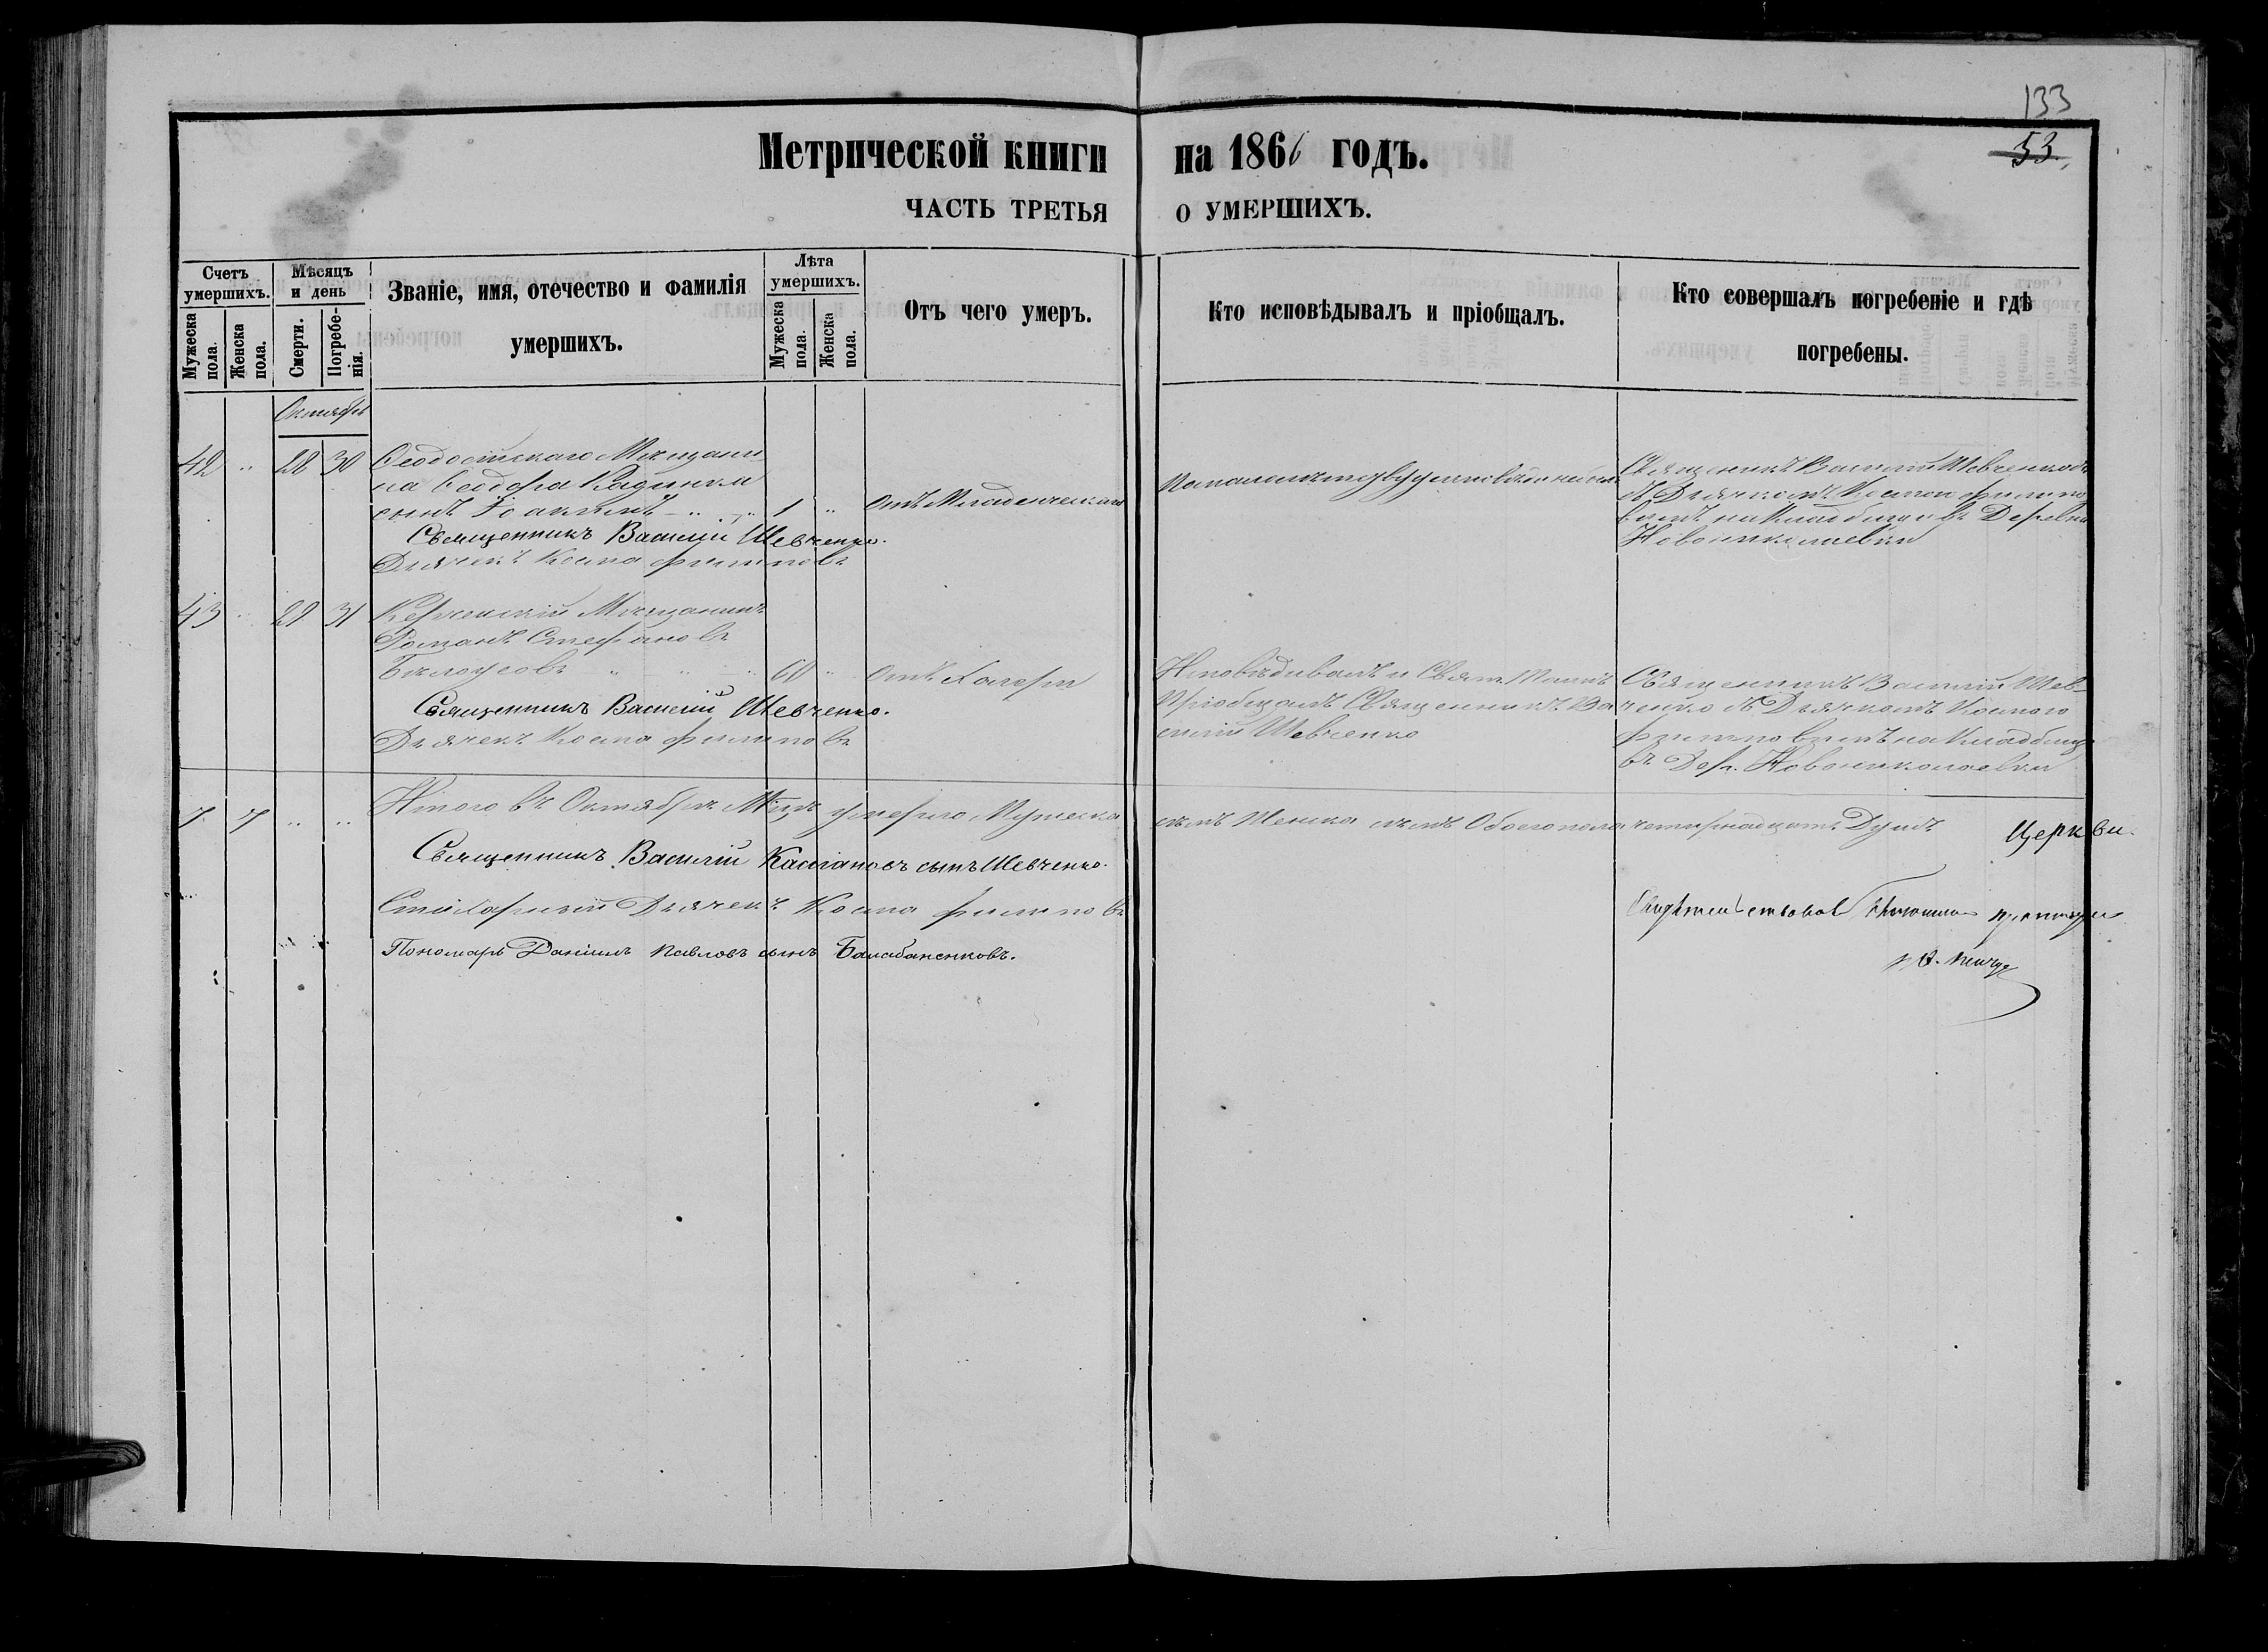 133
53.
Метрической книги на 1866 годъ.
ЧАСТЬ ТРЕТЬЯ О УМЕРШИХЪ.
Счетъ умершихъ.
Мужеска пола.
Женска пола.
Мѣсяцъ и день
Смерти.
Погребенія.
Званіе, имя, отечество и фамилія умершихъ.
Лѣта умершихъ.
Мужеска пола.
Женска пола.
Отъ чего умеръ.
Кто исповѣдывалъ и пріобщалъ.
Кто совершалъ погребеніе и гдѣ погребены.
Октябрь
42 " 28 30 Ѳеодосійскаго Мѣщани
на Ѳеодора
сынъ Іоакимъ 1 " Отъ Младенческой
Священникъ Василій Шевченко.
Дьячекъ Косма Филиповъ
Священникъ Василій Шевченко
съ Дьячкомъ Космою Филипо
вымъ на Кладбищѣ въ Деревни
Новониколаевки
43 " 28 31 Керченскій Мѣщанинъ
Романъ Стефановъ
Бѣлоусовъ " " 60 " Отъ Холеры
Священникъ Василій Шевченко.
Дьячекъ Косма Филиповъ
Исповѣдывалъ и Свят. Таинъ
Пріобщалъ Священникъ Ва
силій Шевченко
Священникъ Василій Шев-
ченко съ Дьячкомъ Космою
Филиповымъ на Кладбищѣ
въ Дер. Новониколаевки
7 7 " " Итого въ Октябрѣ М-цѣ умерло Мужеска семь Женска семь Обоего пола четырнадцать Душъ
Церкви.
Священникъ Василій Кассіановъ сынъ Шевченко.
Стихарный Дьячекъ Косма Филиповъ
Пономарь Даніилъ Павловъ сынъ Балабаненковъ.